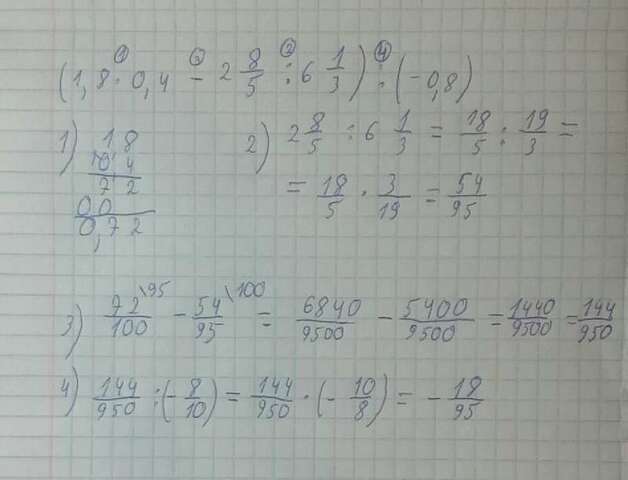 (1,8 · 0,4 - 2 8/5 : 6 1/3) : (-0,8)
1) 1,8
0 4
7 2
0 0
0,7 2
2) 2 8/5 : 6 1/3 = 18/5 : 19/3 =
= 18/5 · 3/19 = 54/95
3) 72/100 \95 - 54/95 \100 = 6840/9500 - 5400/9500 = 1440/9500 = 144/950
4) 144/950 : (-8/10) = 144/950 · (-10/8) = - 18/95